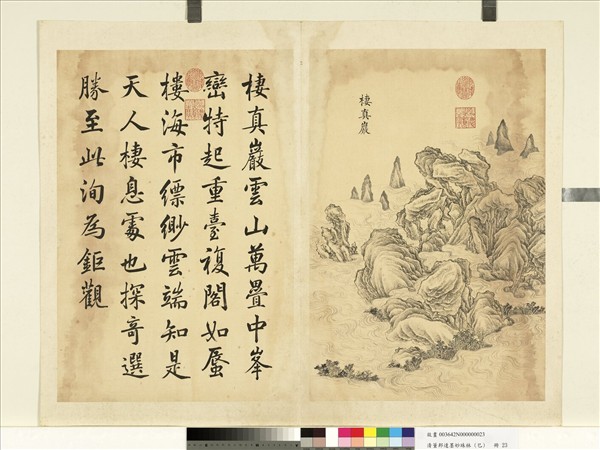 棲真巖雲山萬疊中峯
巒特起重臺複閣如蜃
樓海市縹緲雲端知是
天人棲息處也探奇選
勝至此洵為鉅觀
棲真巖
故畫003642N000000023
清董邦達墨妙珠林(巳) 冊 23